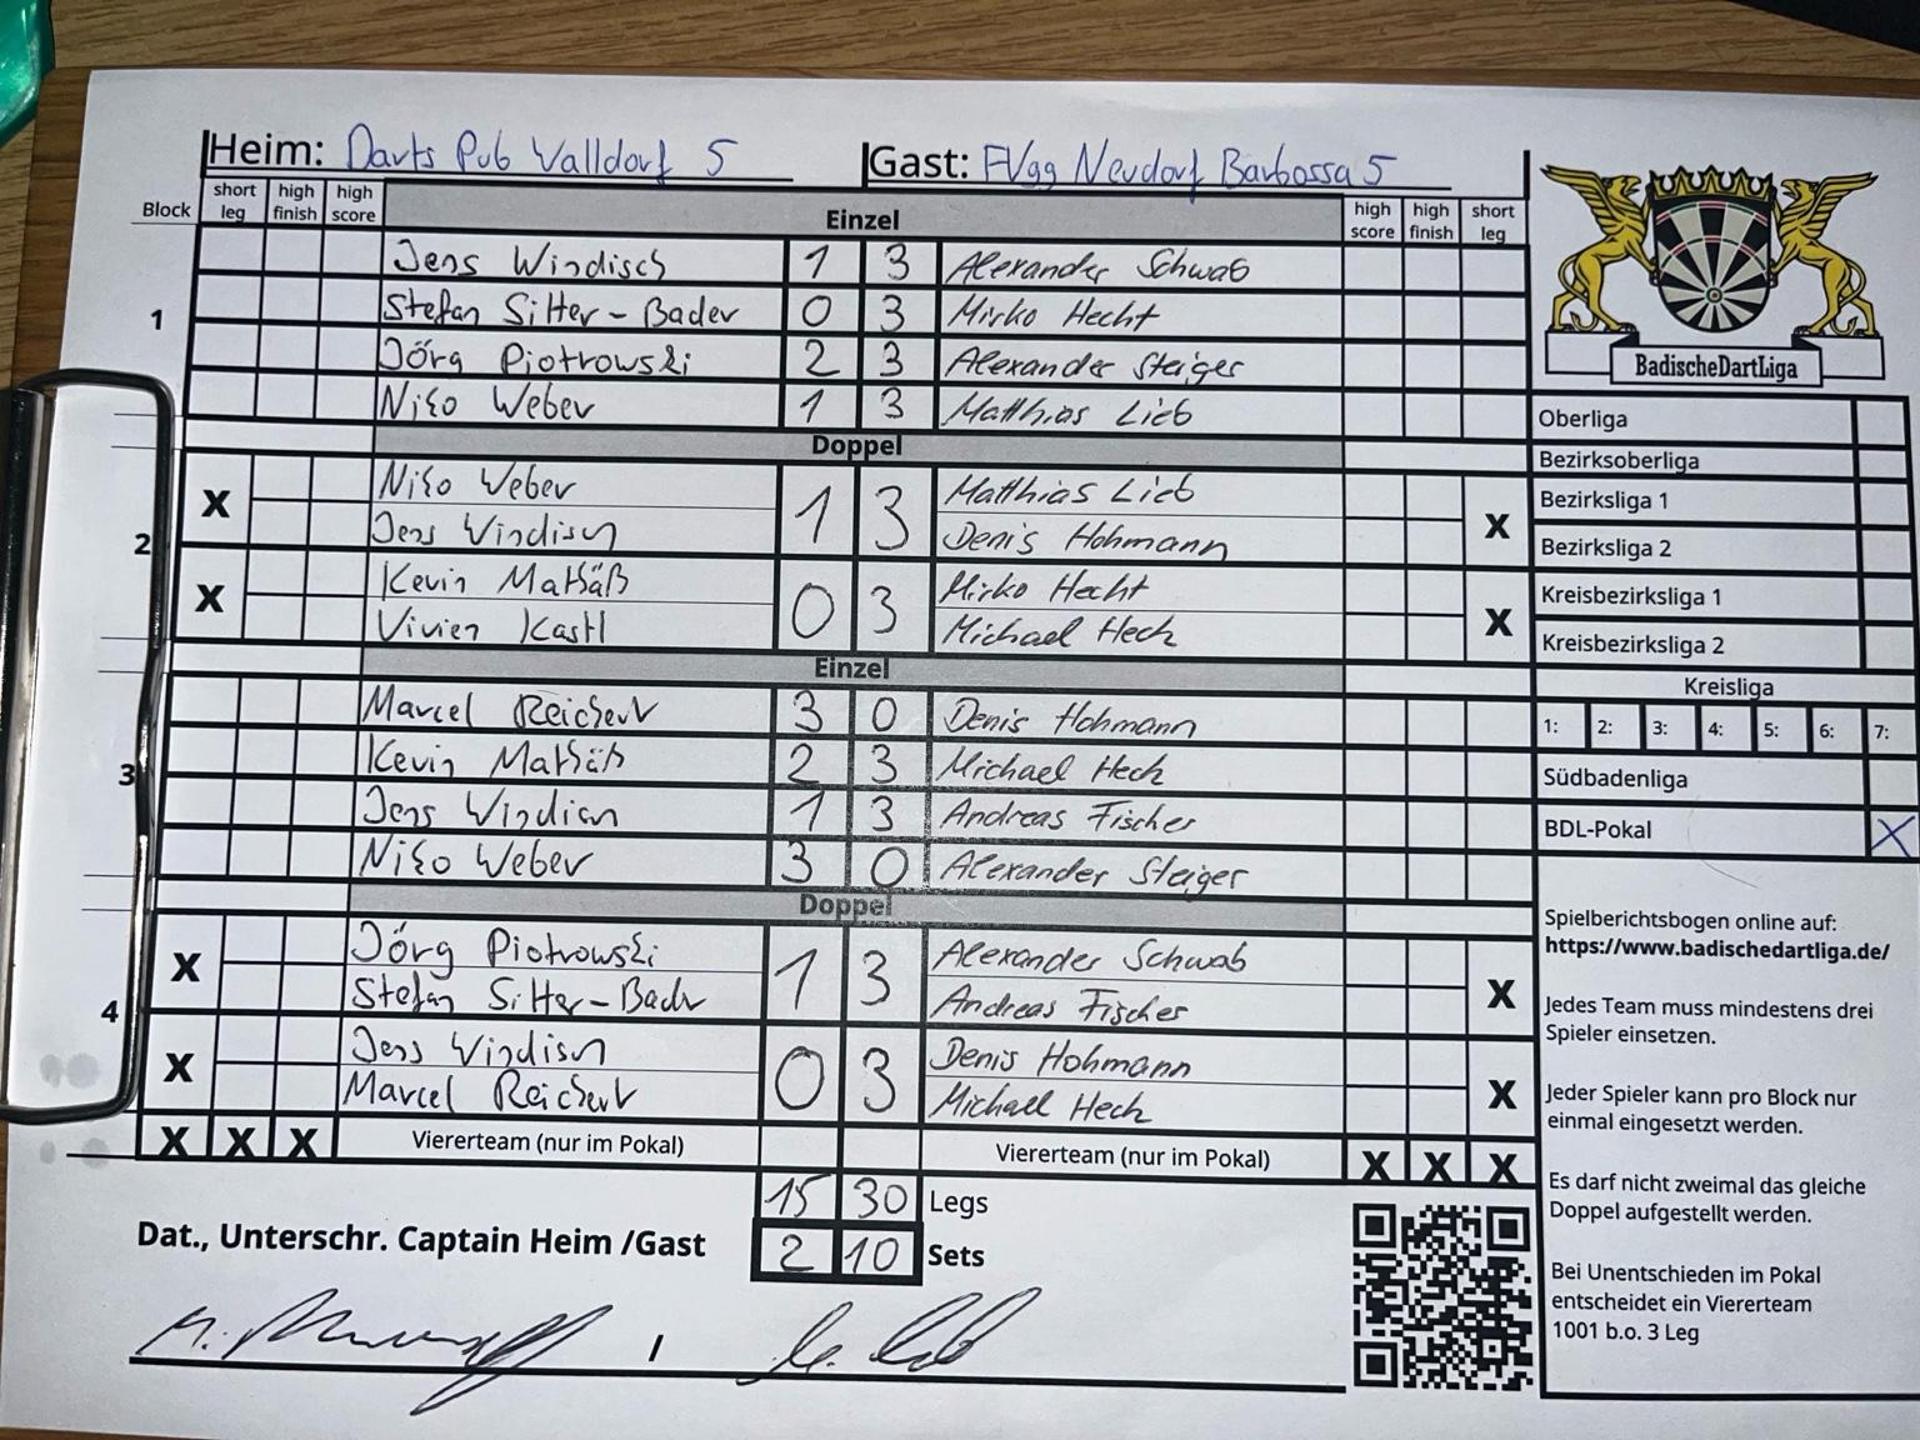 Heim: Darts Pub Walldorf 5 Gast: FVgg Neudorf Barbossa 5
Block short leg high finish high score Einzel high score high finish short leg
1
Jens Windisch 1 3 Alexander Schwab
Stefan Sitter-Bader 0 3 Mirko Hecht
Jörg Piotrowski 2 3 Alexander Steiger
Niko Weber 1 3 Matthias Lieb
Doppel
2
X Niko Weber 1 3 Matthias Lieb X
Jens Windisch Denis Hohmann
X Kevin Matthäß 0 3 Mirko Hecht X
Vivien Kastl Michael Heck
Einzel
3
Marcel Reichert 3 0 Denis Hohmann
Kevin Matthäß 2 3 Michael Heck
Jens Windisch 1 3 Andreas Fischer
Niko Weber 3 0 Alexander Steiger
Doppel
4
X Jörg Piotrowski 1 3 Alexander Schwab X
Stefan Sitter-Bader Andreas Fischer
X Jens Windisch 0 3 Denis Hohmann X
Marcel Reichert Michael Heck
X X X Viererteam (nur im Pokal) Viererteam (nur im Pokal) X X X
15 30 Legs
2 10 Sets
Dat., Unterschr. Captain Heim /Gast
/
BadischeDartLiga
Oberliga
Bezirksoberliga
Bezirksliga 1
Bezirksliga 2
Kreisbezirksliga 1
Kreisbezirksliga 2
Kreisliga
1: 2: 3: 4: 5: 6: 7:
Südbadenliga
BDL-Pokal X
Spielberichtsbogen online auf:
https://www.badischedartliga.de/
Jedes Team muss mindestens drei
Spieler einsetzen.
Jeder Spieler kann pro Block nur
einmal eingesetzt werden.
Es darf nicht zweimal das gleiche
Doppel aufgestellt werden.
Bei Unentschieden im Pokal
entscheidet ein Viererteam
1001 b.o. 3 Leg